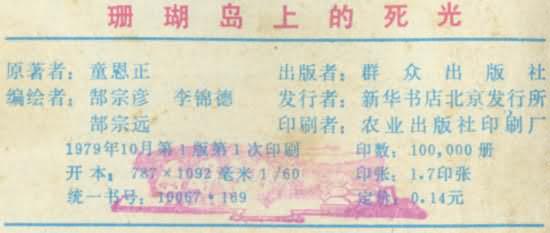 珊瑚岛上的死光
原著者：童恩正 出版者：群众出版社
编绘者：郜宗彦 李锦德 发行者：新华书店北京发行所
郜宗远 印刷者：农业出版社印刷厂
1979年10月第1版第1次印刷 印数：100,000册
开本：787×1092毫米1/60 印张：1.7印张
统一书号：10067·169 定价：0.14元